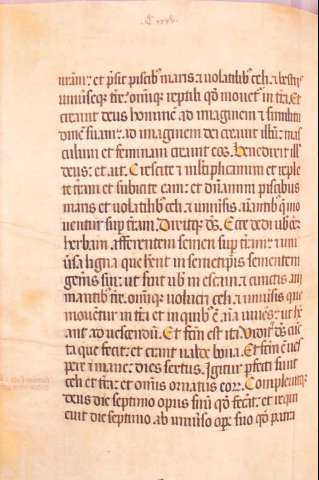 nr̄am: et p̄sit piscib; maris: ⁊ uolatilib; celi: ⁊ bestijs
uniuseq; tr̄e: om̄iq; reptili qd̄ mouet in tr̄a. Et
creauit deus hominē ad imaginem ⁊ similitu
dinē suam: ad imaginem dei creauit illū: mas
culum et feminam creauit eos. Benedixit ill'
deus: et ait. Crescite ⁊ ml̄tiplicamini et reple
te tr̄am et subicite eam: et dn̄amini piscibus
maris et uolatilib; celi: ⁊ uniuīsis aīantib; q̄ mo
uentur sup tr̄am. Dixitq; d̄s. Ecce dedi uob̄ oēm
herbam afferentem semen sup tr̄am: ⁊ uni
uīsa ligna que hn̄t in semetipsis sementem
gen̄is sui: ut sint uob̄ in escam: ⁊ cunctis ani
mantib; tr̄e. om̄iq; uolucri celi. ⁊ uniuīsis que
mouētur in tr̄a et in quib; ē aīa uiuēs: ut hē
ant ad uescendū. Et fcm̄ est ita. Viditq; d̄s cūc
ta que fecit: et erant ualde bona. Et fcm̄ ē ues
pere ⁊ mane: dies sextus. Igitur p̄fecti sunt
celi et tr̄a: et om̄is ornatus eor. Compleuitq;
deus die septimo opus suū qd̄ fecāt: et requi
euit die septimo ab uniūso ope suo qd̄ patra